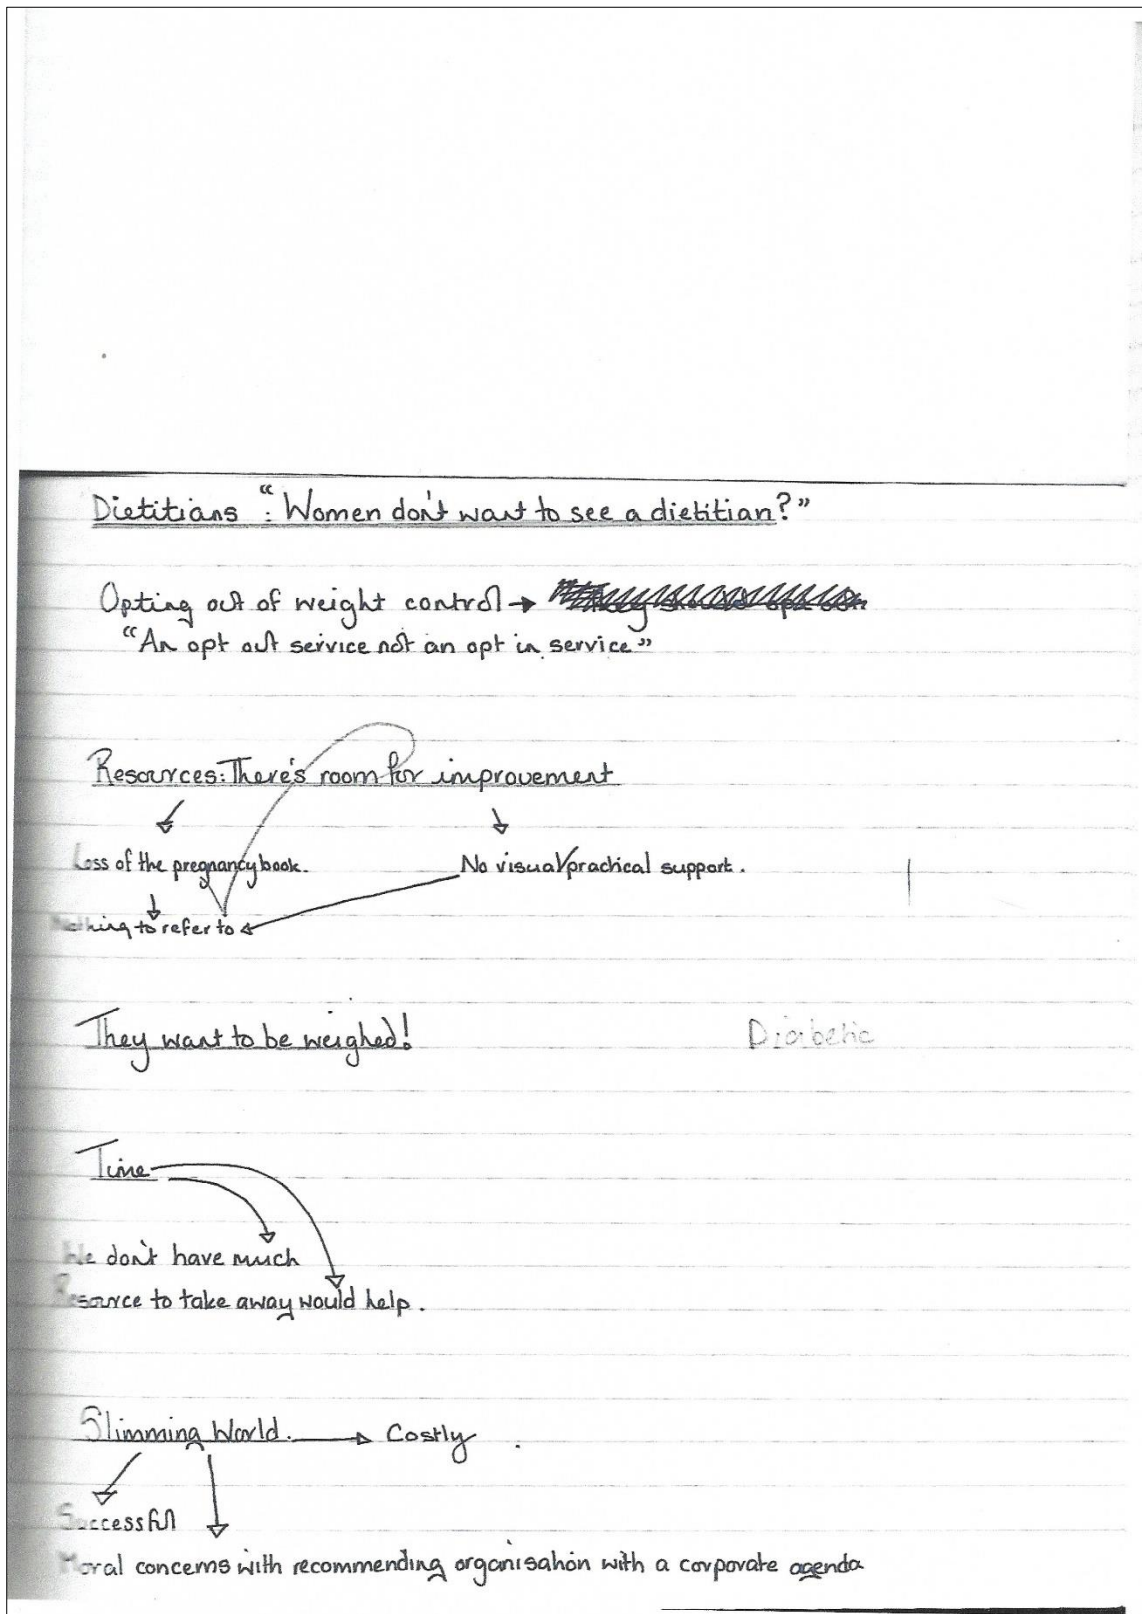 Dietitians: "Women don't want to see a dietitian?"
Opting out of weight control →
"An opt out service not an opt in service"
Resources: There's room for improvement
Loss of the pregnancy book.
No visual/practical support.
Nothing to refer to
They want to be weighed!
Diabetic
Time
We don't have much
Resource to take away would help.
Slimming World. → Costly
Successful
Moral concerns with recommending organisation with a corporate agenda